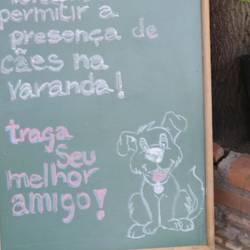 permitir a
presença de
cães na
varanda!
traga
seu
melhor
amigo!